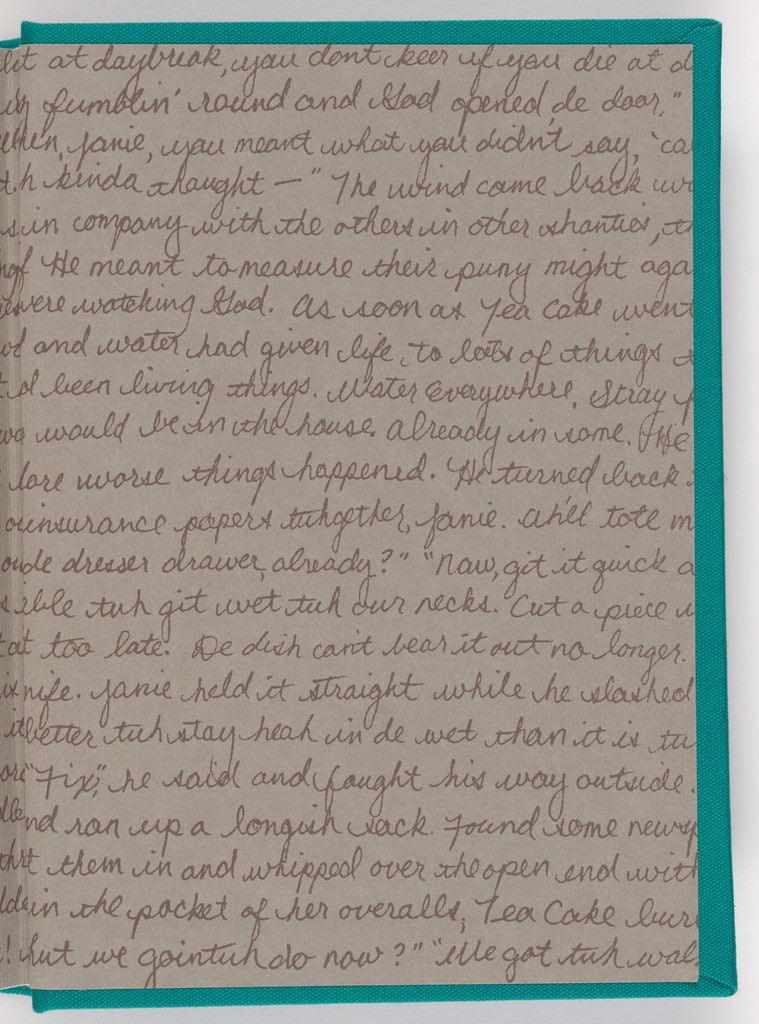 at daybreak, you don't keer if you die at d
fumblin' round and God opened de door."
Janie, you meant what you didn't say, 'ca
kinda thought—" The wind came back wi
in company with the others in other shanties, th
He meant to measure their puny might aga
were watching God. As soon as Tea Cake went
and water had given life, to lots of things
been living things. Water Everywhere. Stray f
would be in the house. Already in some. He
worse things happened. He turned back
insurance papers tuhgether, Janie. Ah'll tote m
de dresser drawer, already?" "Now, git it quick a
tuh git wet tuh our necks. Cut a piece
too late. De dish can't bear it out no longer.
Janie held it straight while he slashed
better tuh stay heah in de wet than it is tu
"Fix," he said and fought his way outside.
ran up a longish sack. Found some newsp
them in and whipped over the open end with
in the pocket of her overalls, Tea Cake bur
! but we gointuh do now?" "We got tuh wal